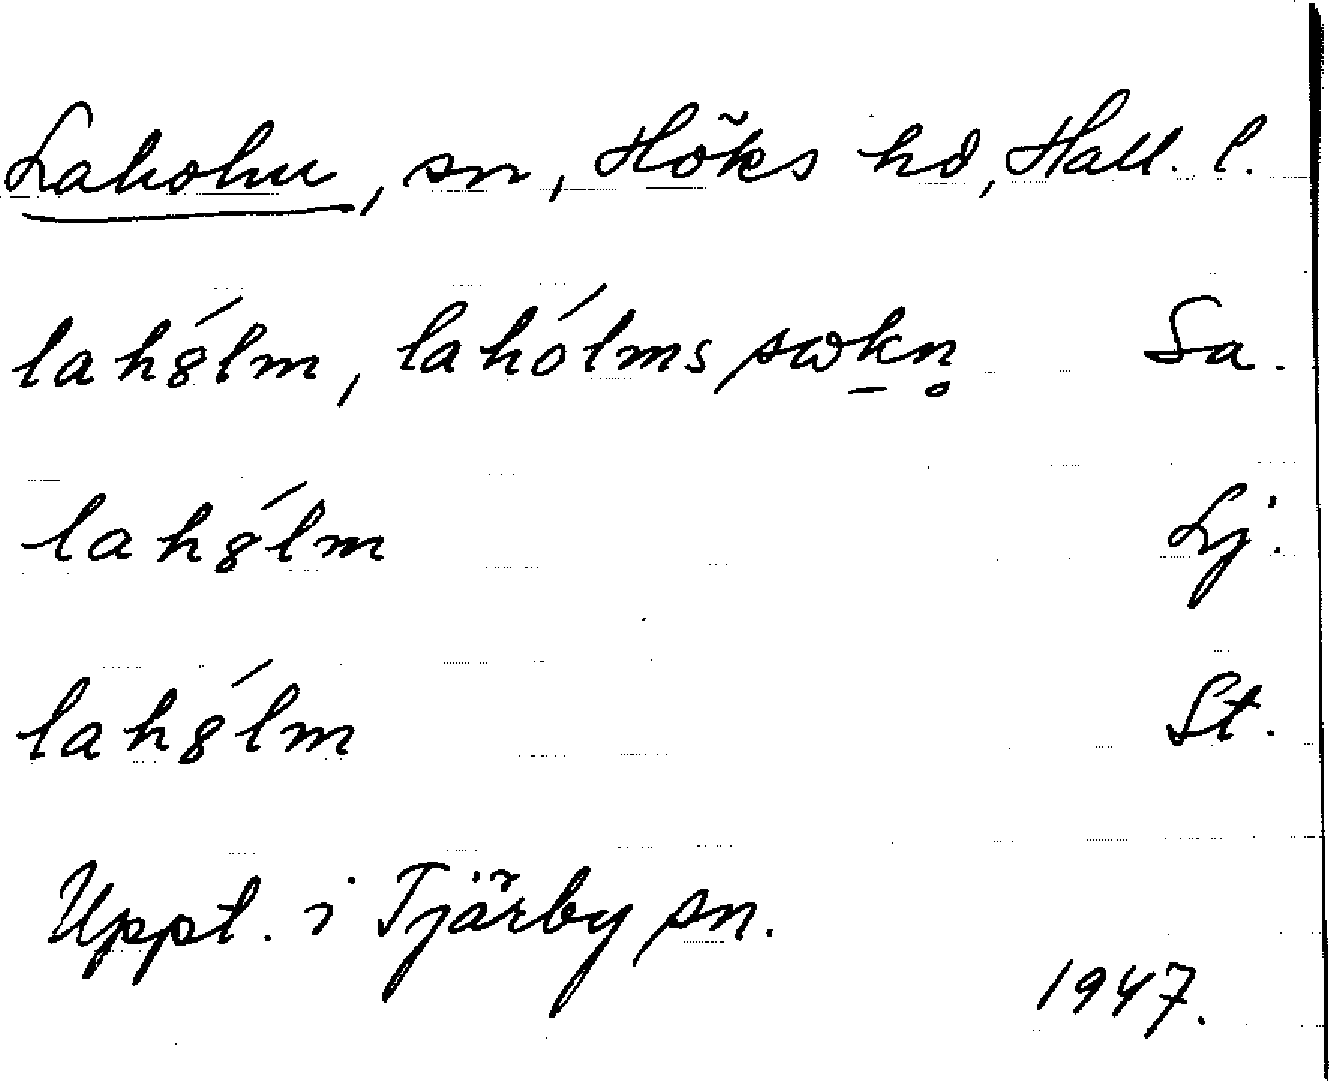 Laholm, sn, Höks hd, Hall. l.
lahȣ́lm, lahólms sωk̠n̥ Sa.
lahȣ́lm Lj.
lahȣ́lm St.
Uppt. i Tjärby sn.
1947.